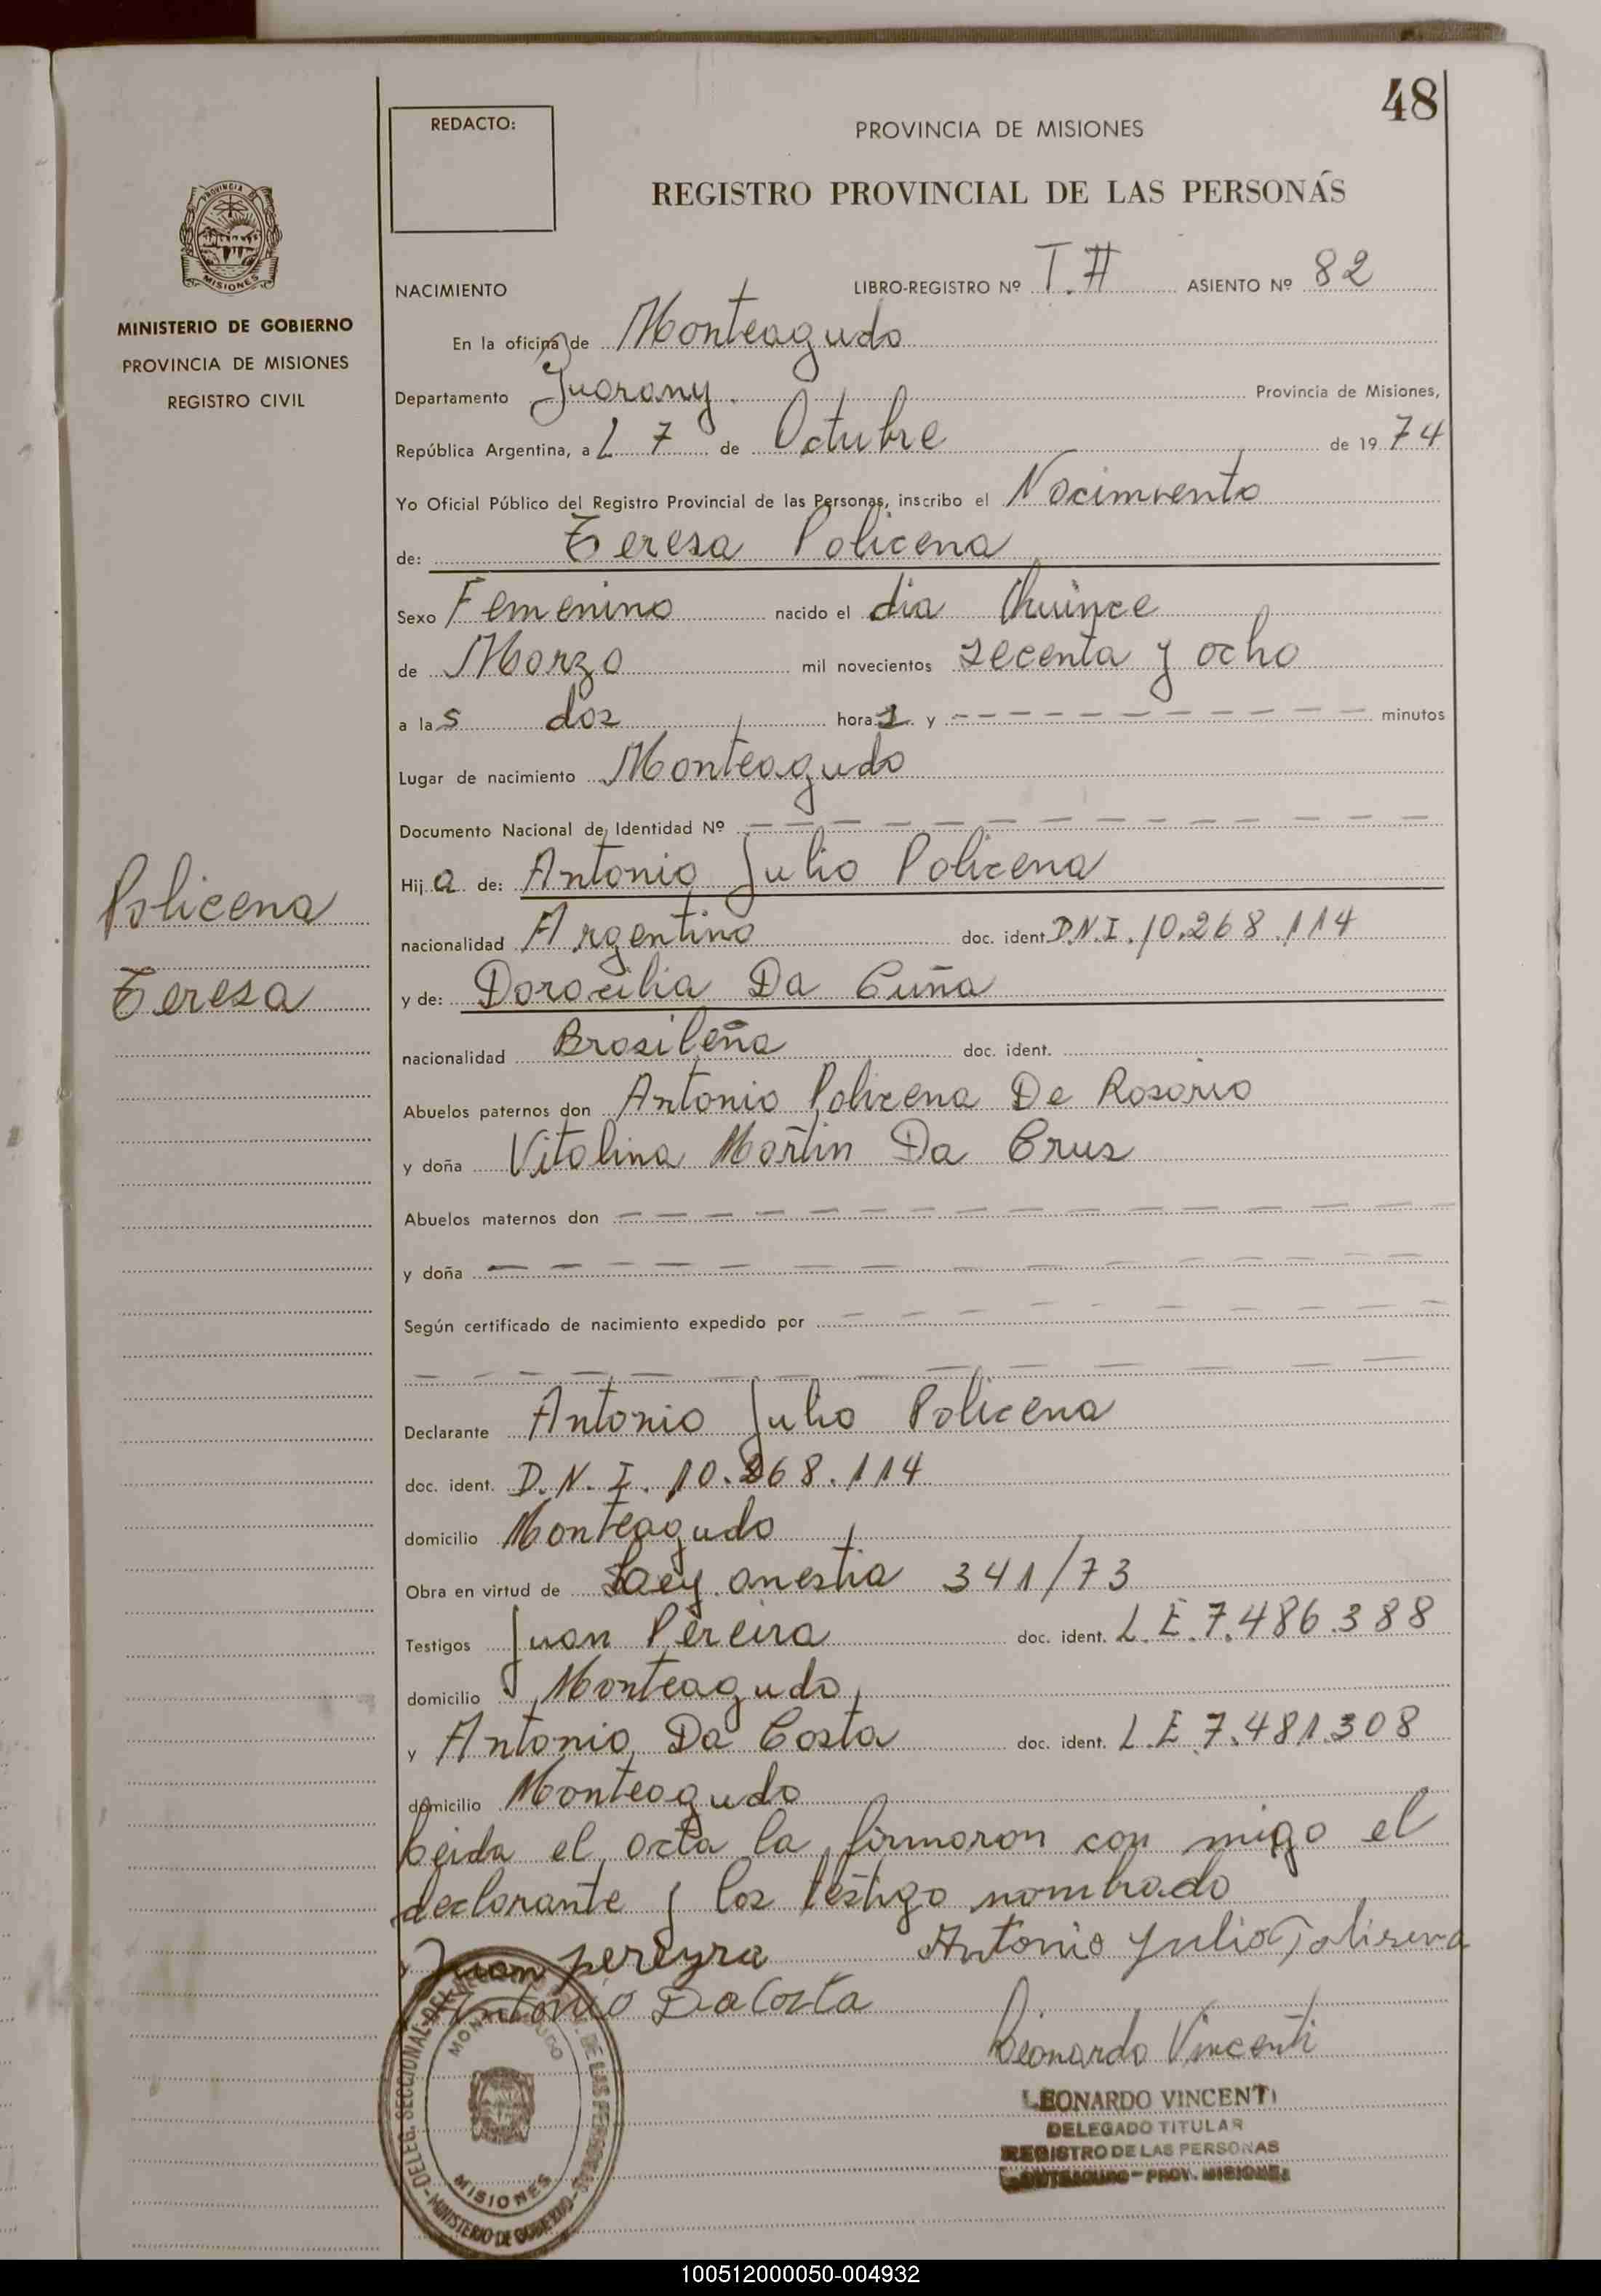 48
REDACTO:
PROVINCIA DE MISIONES
REGISTRO PROVINCIAL DE LAS PERSONAS
PROVINCIA DE
MISIONES
MINISTERIO DE GOBIERNO
PROVINCIA DE MISIONES
REGISTRO CIVIL
NACIMIENTO LIBRO-REGISTRO Nº T. ASIENTO Nº 82
En la oficina de Monteagudo
Departamento Guarany. Provincia de Misiones,
República Argentina, a L 7 de Octubre de 1974
Yo Oficial Público del Registro Provincial de las Personas, inscribo el Nacimiento
de: Teresa Policena
Sexo Femenino nacido el dia Quince
de Marzo mil novecientos secenta y ocho
a las dos horas y minutos
Lugar de nacimiento Monteagudo
Documento Nacional de Identidad Nº
Hija de: Antonio Julio Policena
Policena
nacionalidad Argentino doc. ident D.N.I. 10.268.114
Teresa
y de: Dorocilia Da Cuña
nacionalidad Brasileña doc. ident.
Abuelos paternos don Antonio Policena De Rosario
y doña Vitalina Martin Da Crus
Abuelos maternos don
y doña
Según certificado de nacimiento expedido por
Declarante Antonio Julio Policena
doc. ident. D.N.I. 10.268.114
domicilio Monteagudo
Obra en virtud de Laey anestia 341/73
Testigos Juan Pereira doc. ident. L.E.7.486.388
domicilio Monteagudo
y Antonio Da Costa doc. ident. L.E 7.481.308
domicilio Monteagudo
Leida el acta la firmaron con migo el
declarante y los testigo nombrado
Juan pereyra Antonio Julio Polisena
Antonio Da Costa
Leonardo Vincenti
LEONARDO VINCENTI
DELEGADO TITULAR
REGISTRO DE LAS PERSONAS
MONTEAGUDO - PROV. MISIONES
DELEG. SECCIONAL DE LAS PERSONAS
MONTEAGUDO
MISIONES
MINISTERIO DE GOBIERNO
100512000050-004932